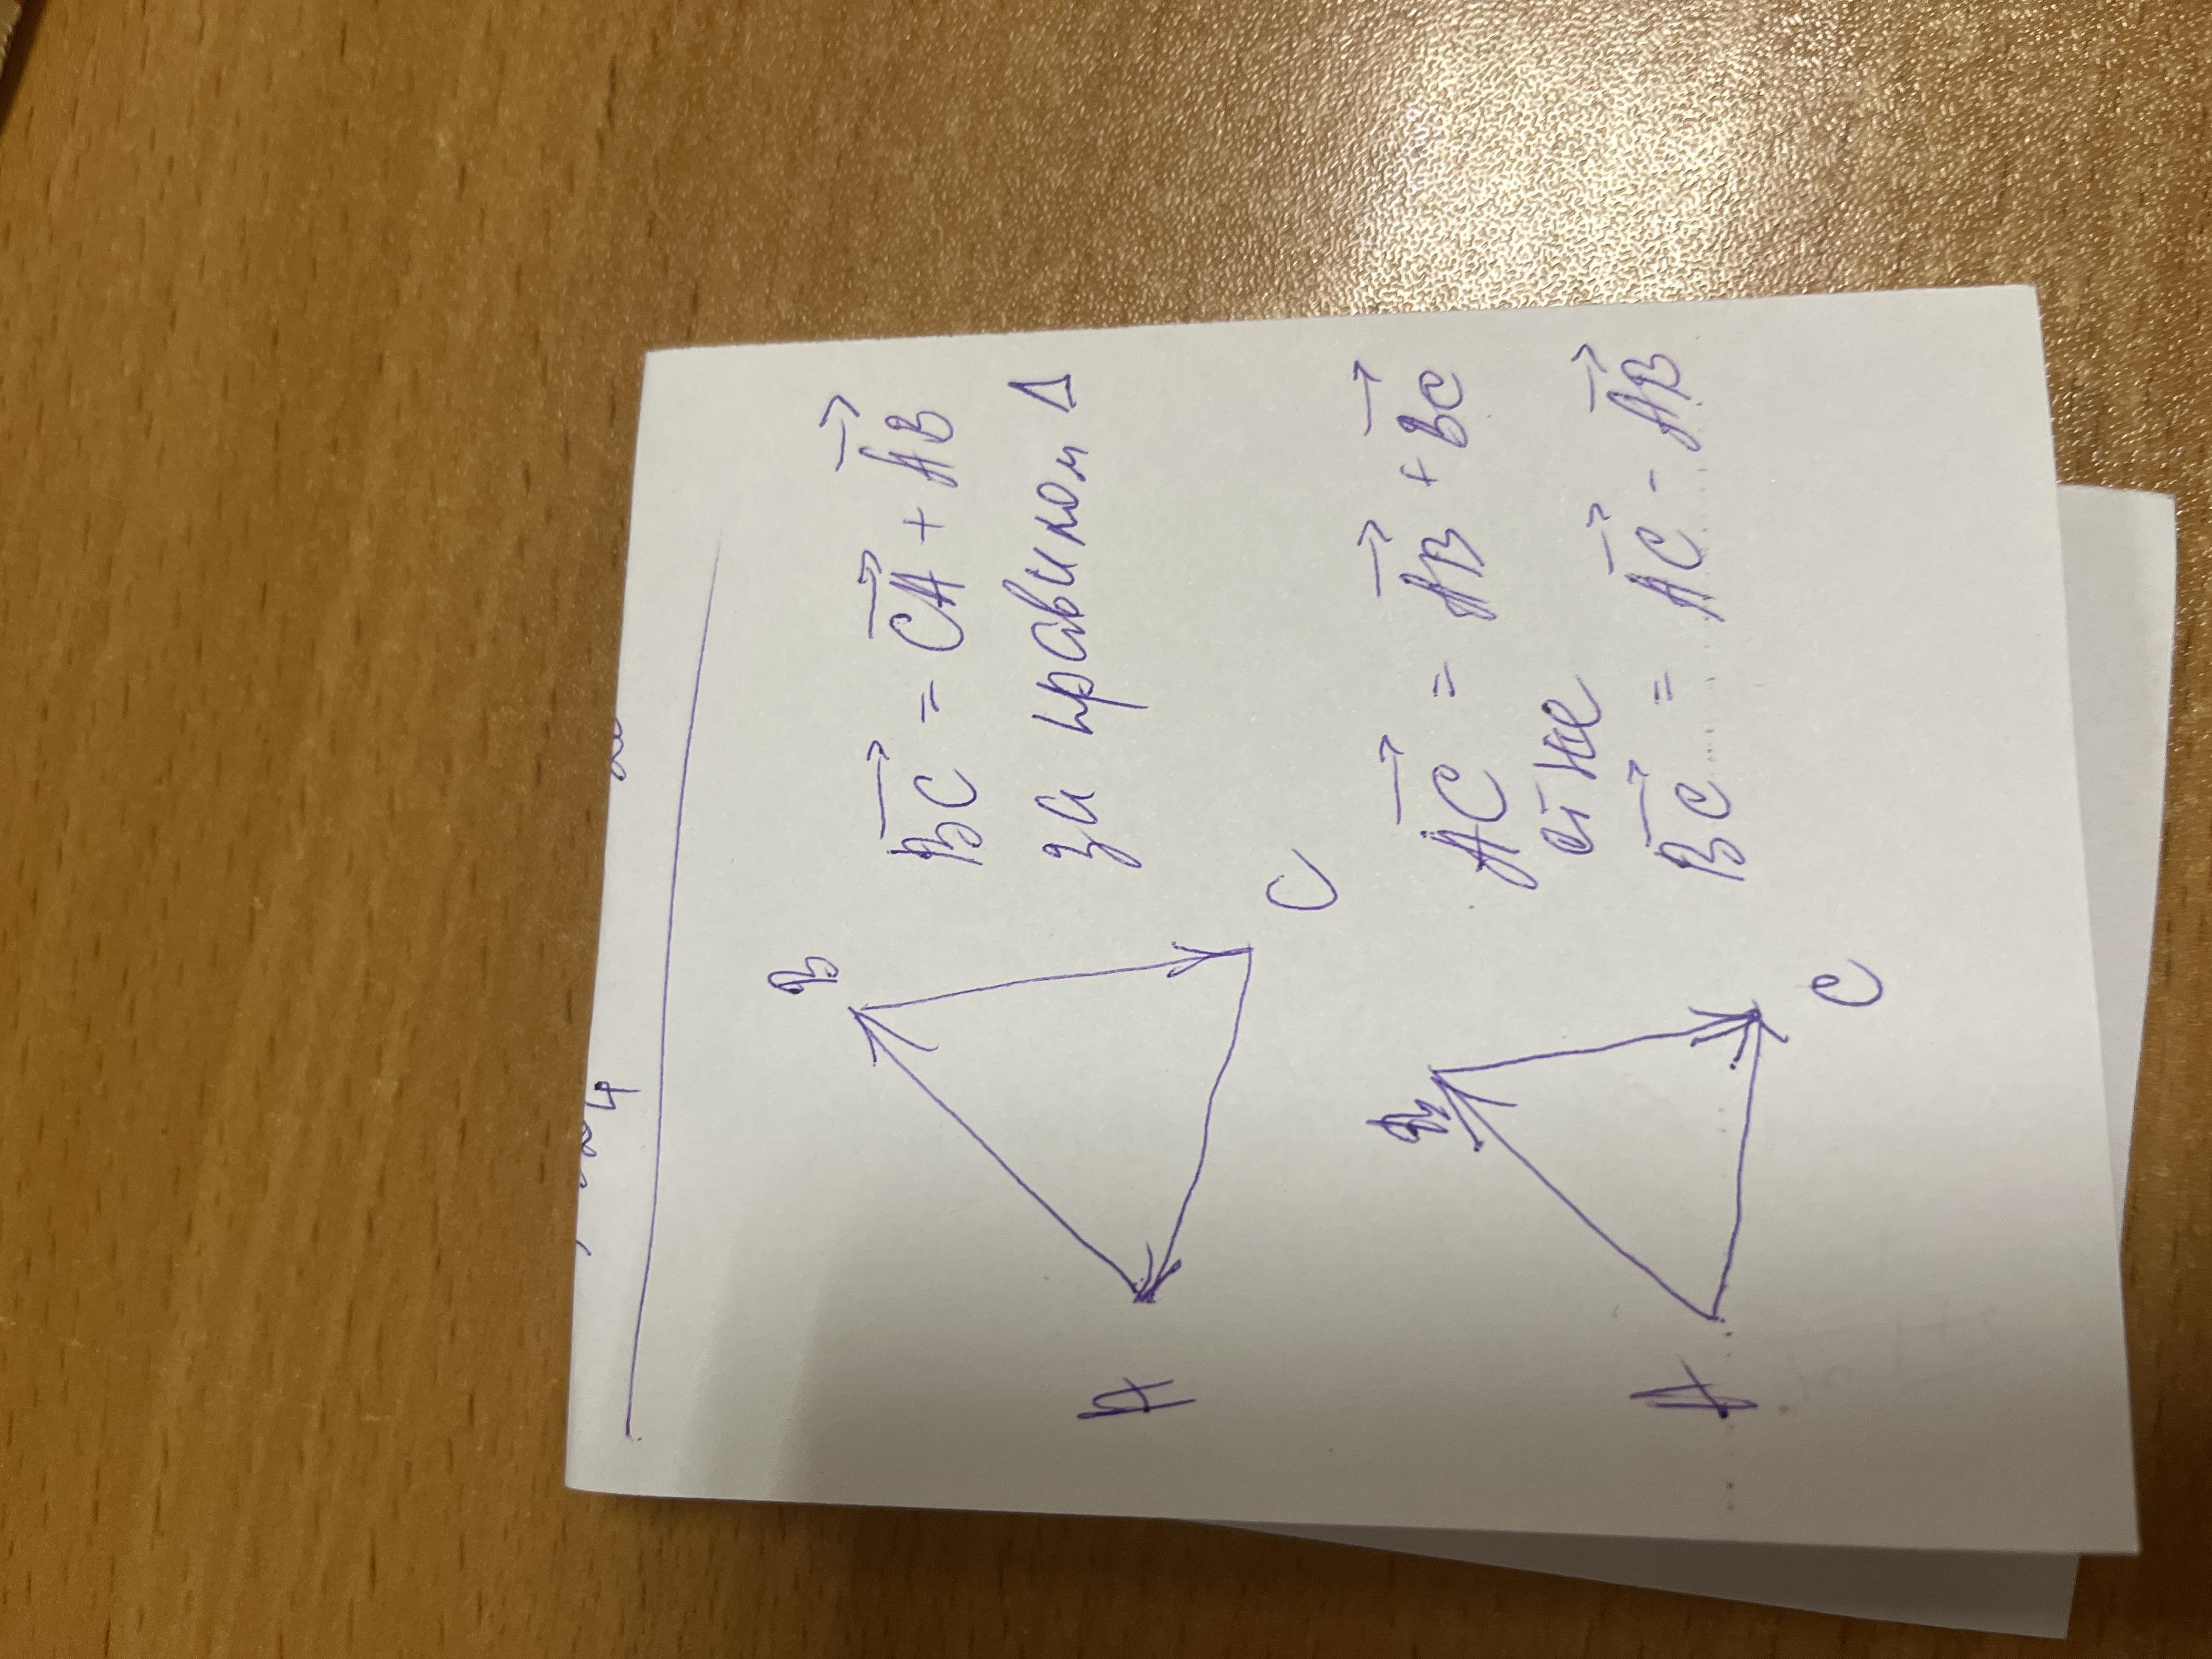 B
A
C
BC = CA + AB
за правилом Δ
B
A
C
AC = AB + BC
BC = AC - AB